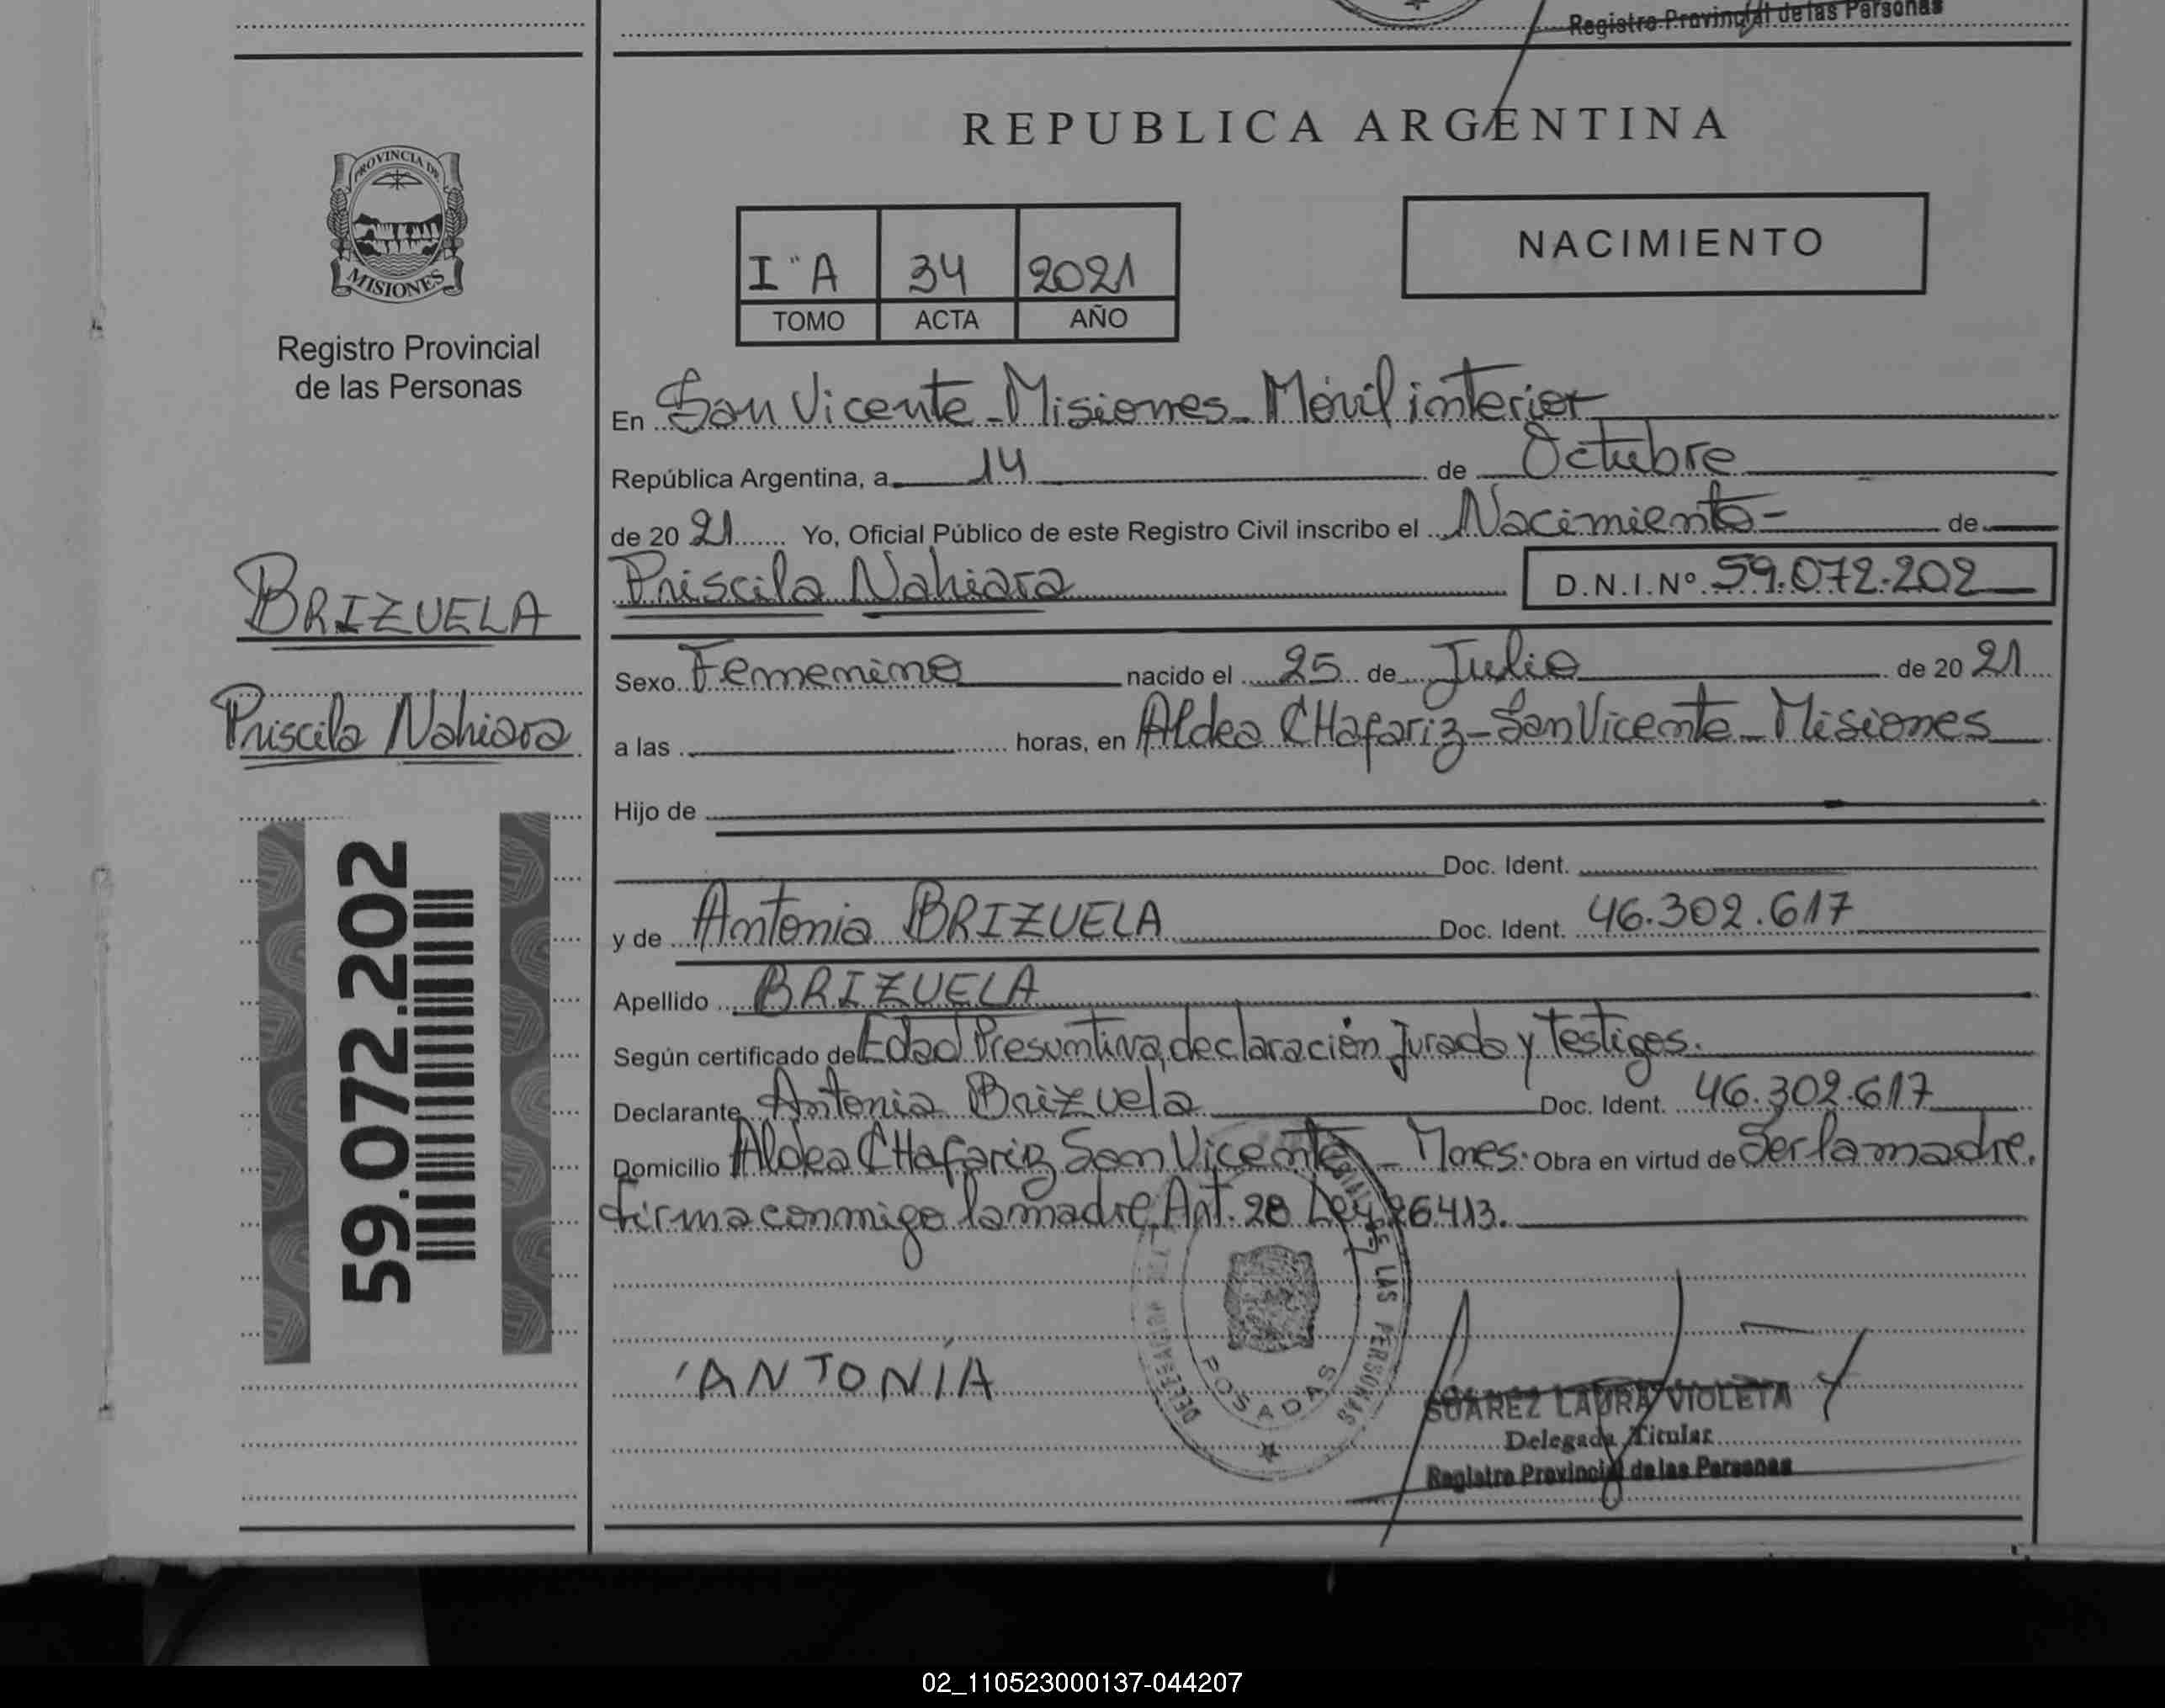 Registro Provincial de las Personas
PROVINCIA DE
MISIONES
Registro Provincial
de las Personas
BRIZUELA
Priscila Nahiara
59.072.202
REPUBLICA ARGENTINA
I "A 34 2021
TOMO ACTA AÑO
NACIMIENTO
En San Vicente - Misiones - Móvil interior
República Argentina, a 14 de Octubre
de 20 21 Yo, Oficial Público de este Registro Civil inscribo el Nacimiento - de
Priscila Nahiara D.N.I.Nº 59.072.202
Sexo Femenino nacido el 25 de Julio de 20 21
a las horas, en Aldea CHafariz - San Vicente - Misiones
Hijo de
Doc. Ident.
y de Antonia BRIZUELA Doc. Ident. 46.302.617
Apellido BRIZUELA
Según certificado de Edad Presuntiva, declaración Jurada y Testigos.
Declarante Antonia Brizuela Doc. Ident. 46.302.617
Domicilio Aldea CHafariz San Vicente - Mnes. Obra en virtud de Ser la madre.
firma conmigo la madre. Art. 28 Ley 26413.
DE LAS PERSONAS
POSADAS
ANTONÍA
SUAREZ LAURA VIOLETA
Delegada Titular
Registro Provincial de las Personas
02_110523000137-044207